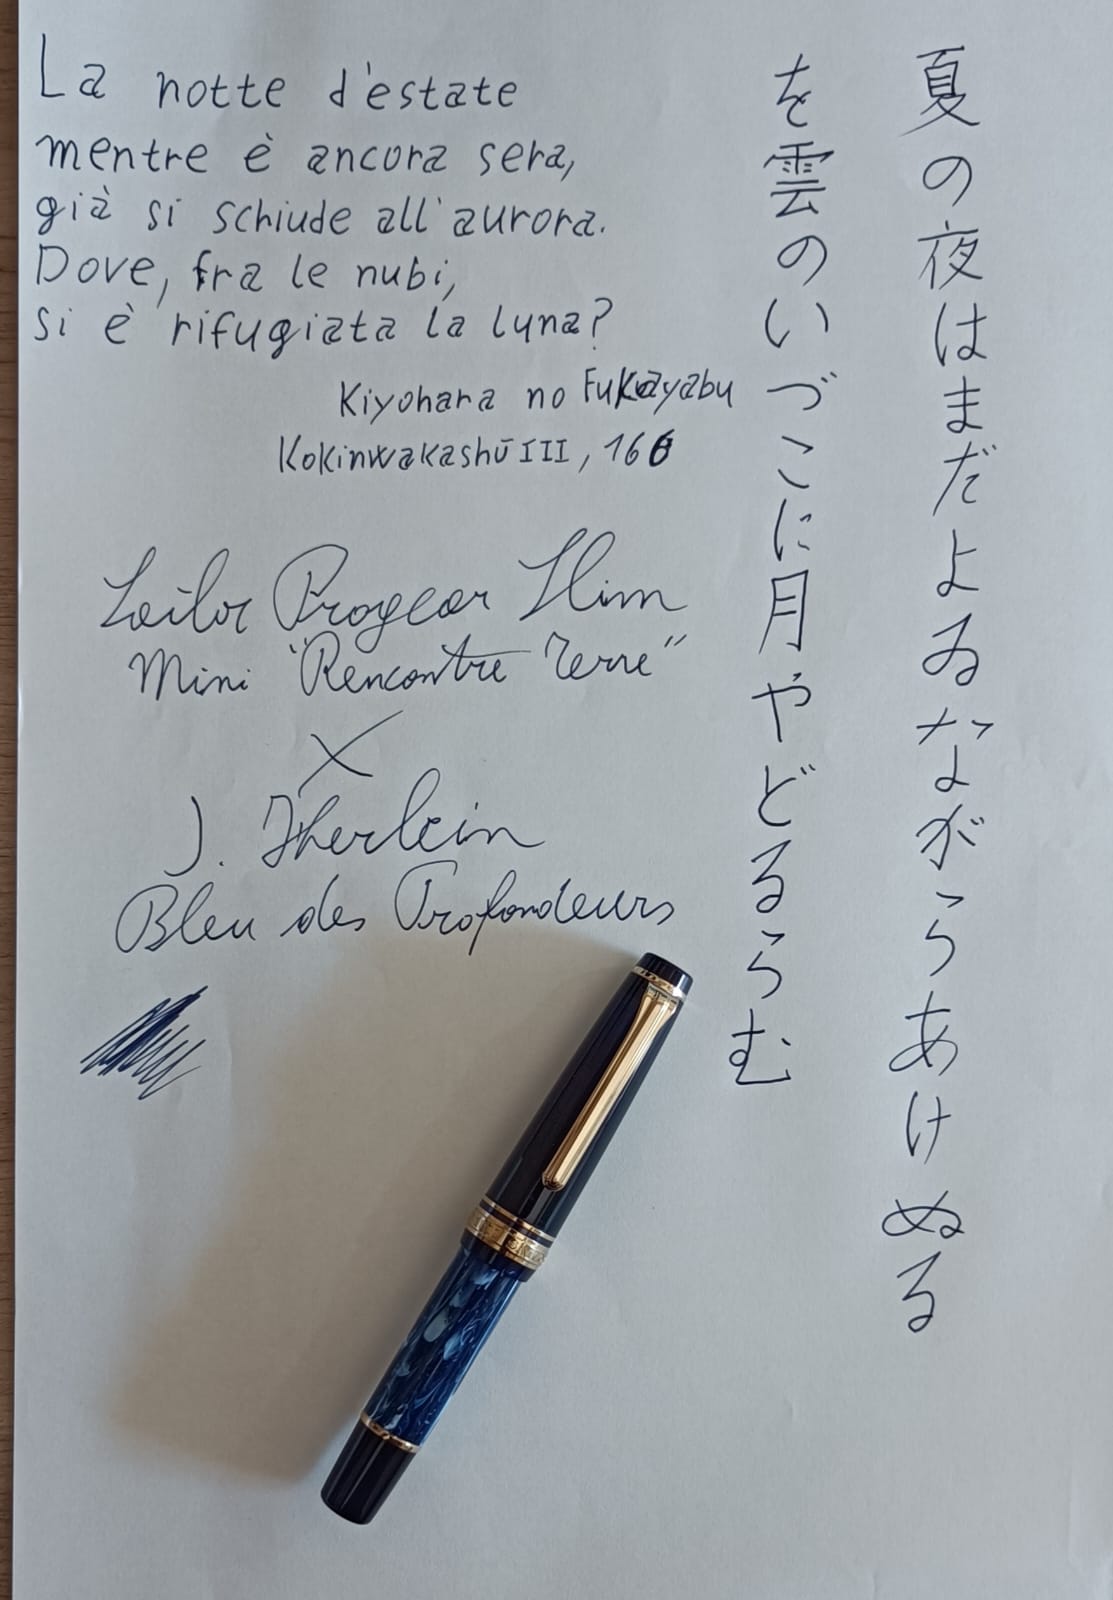 La notte d'estate
mentre è ancora sera,
già si schiude all'aurora.
Dove, fra le nubi,
si è rifugiata la luna?
Kiyohara no Fukayabu
Kokinwakashū III, 166
夏の夜はまだよゐながらあけぬる
を雲のいづこに月やどるらむ
Sailor Progear Slim
Mini "Rencontre Terre"
X
J. Herbin
Bleu des Profondeurs